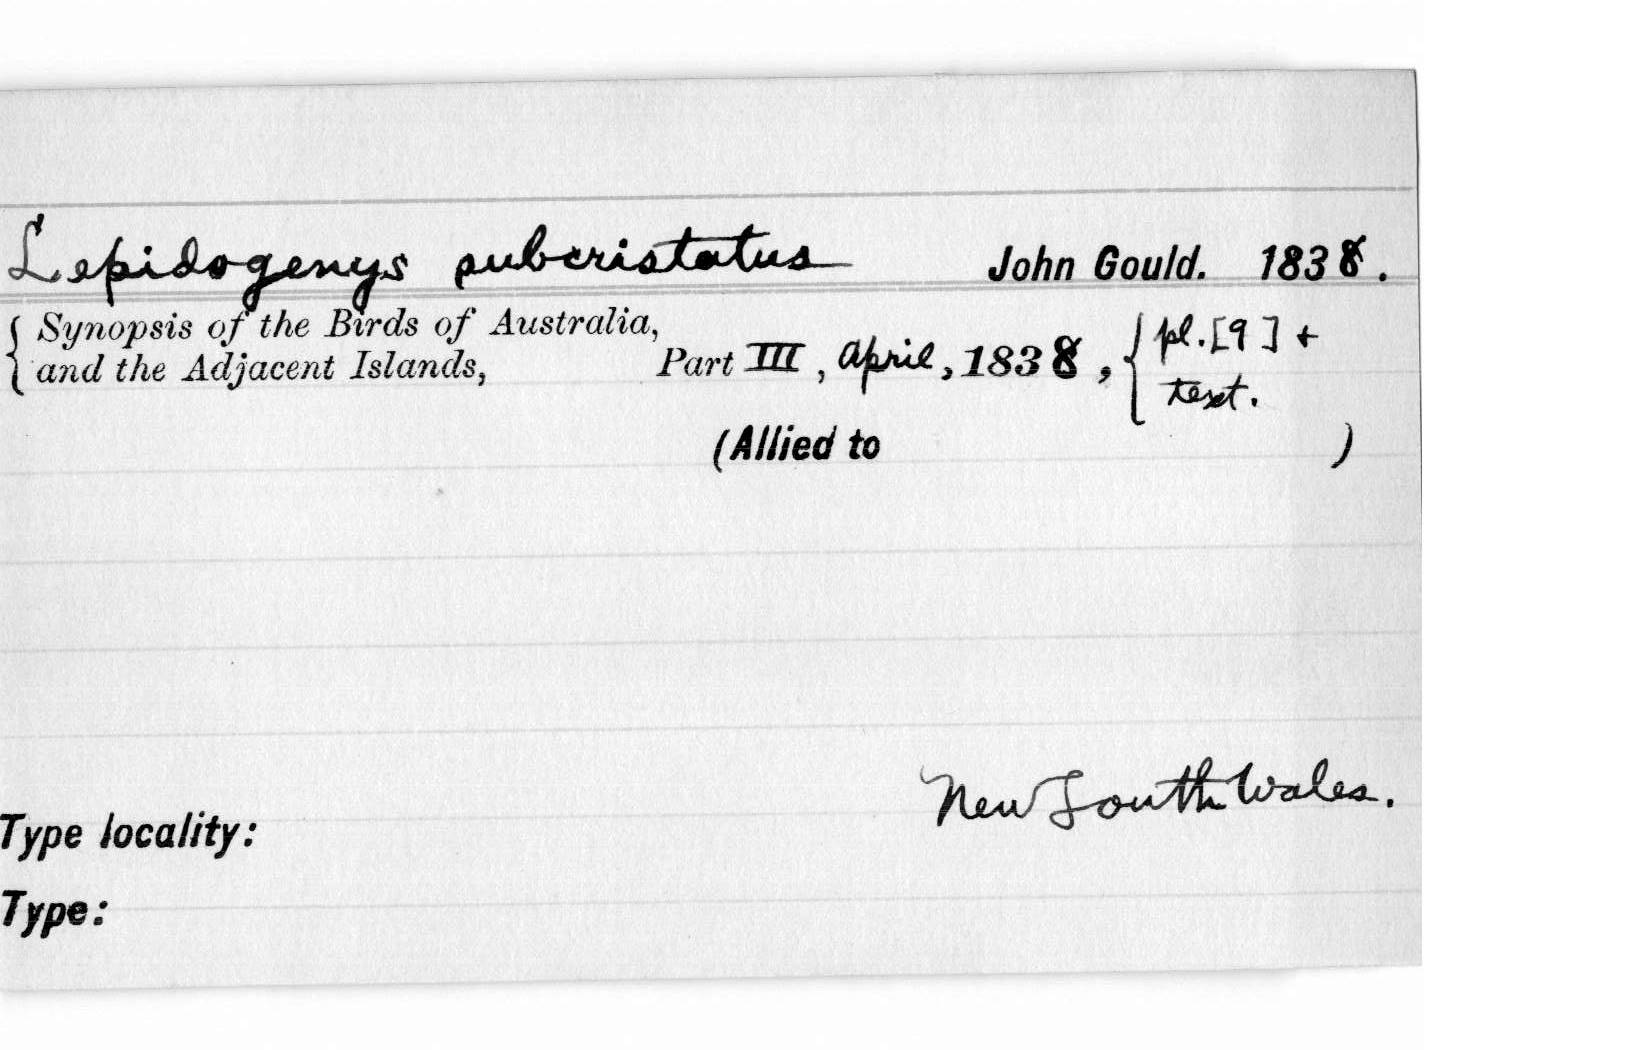 Lepidogenys subcristatus John Gould. 1838.
{ Synopsis of the Birds of Australia,
and the Adjacent Islands, Part III, April, 1838, { pl. [9] +
text.
(Allied to )
New South Wales.
Type locality:
Type: